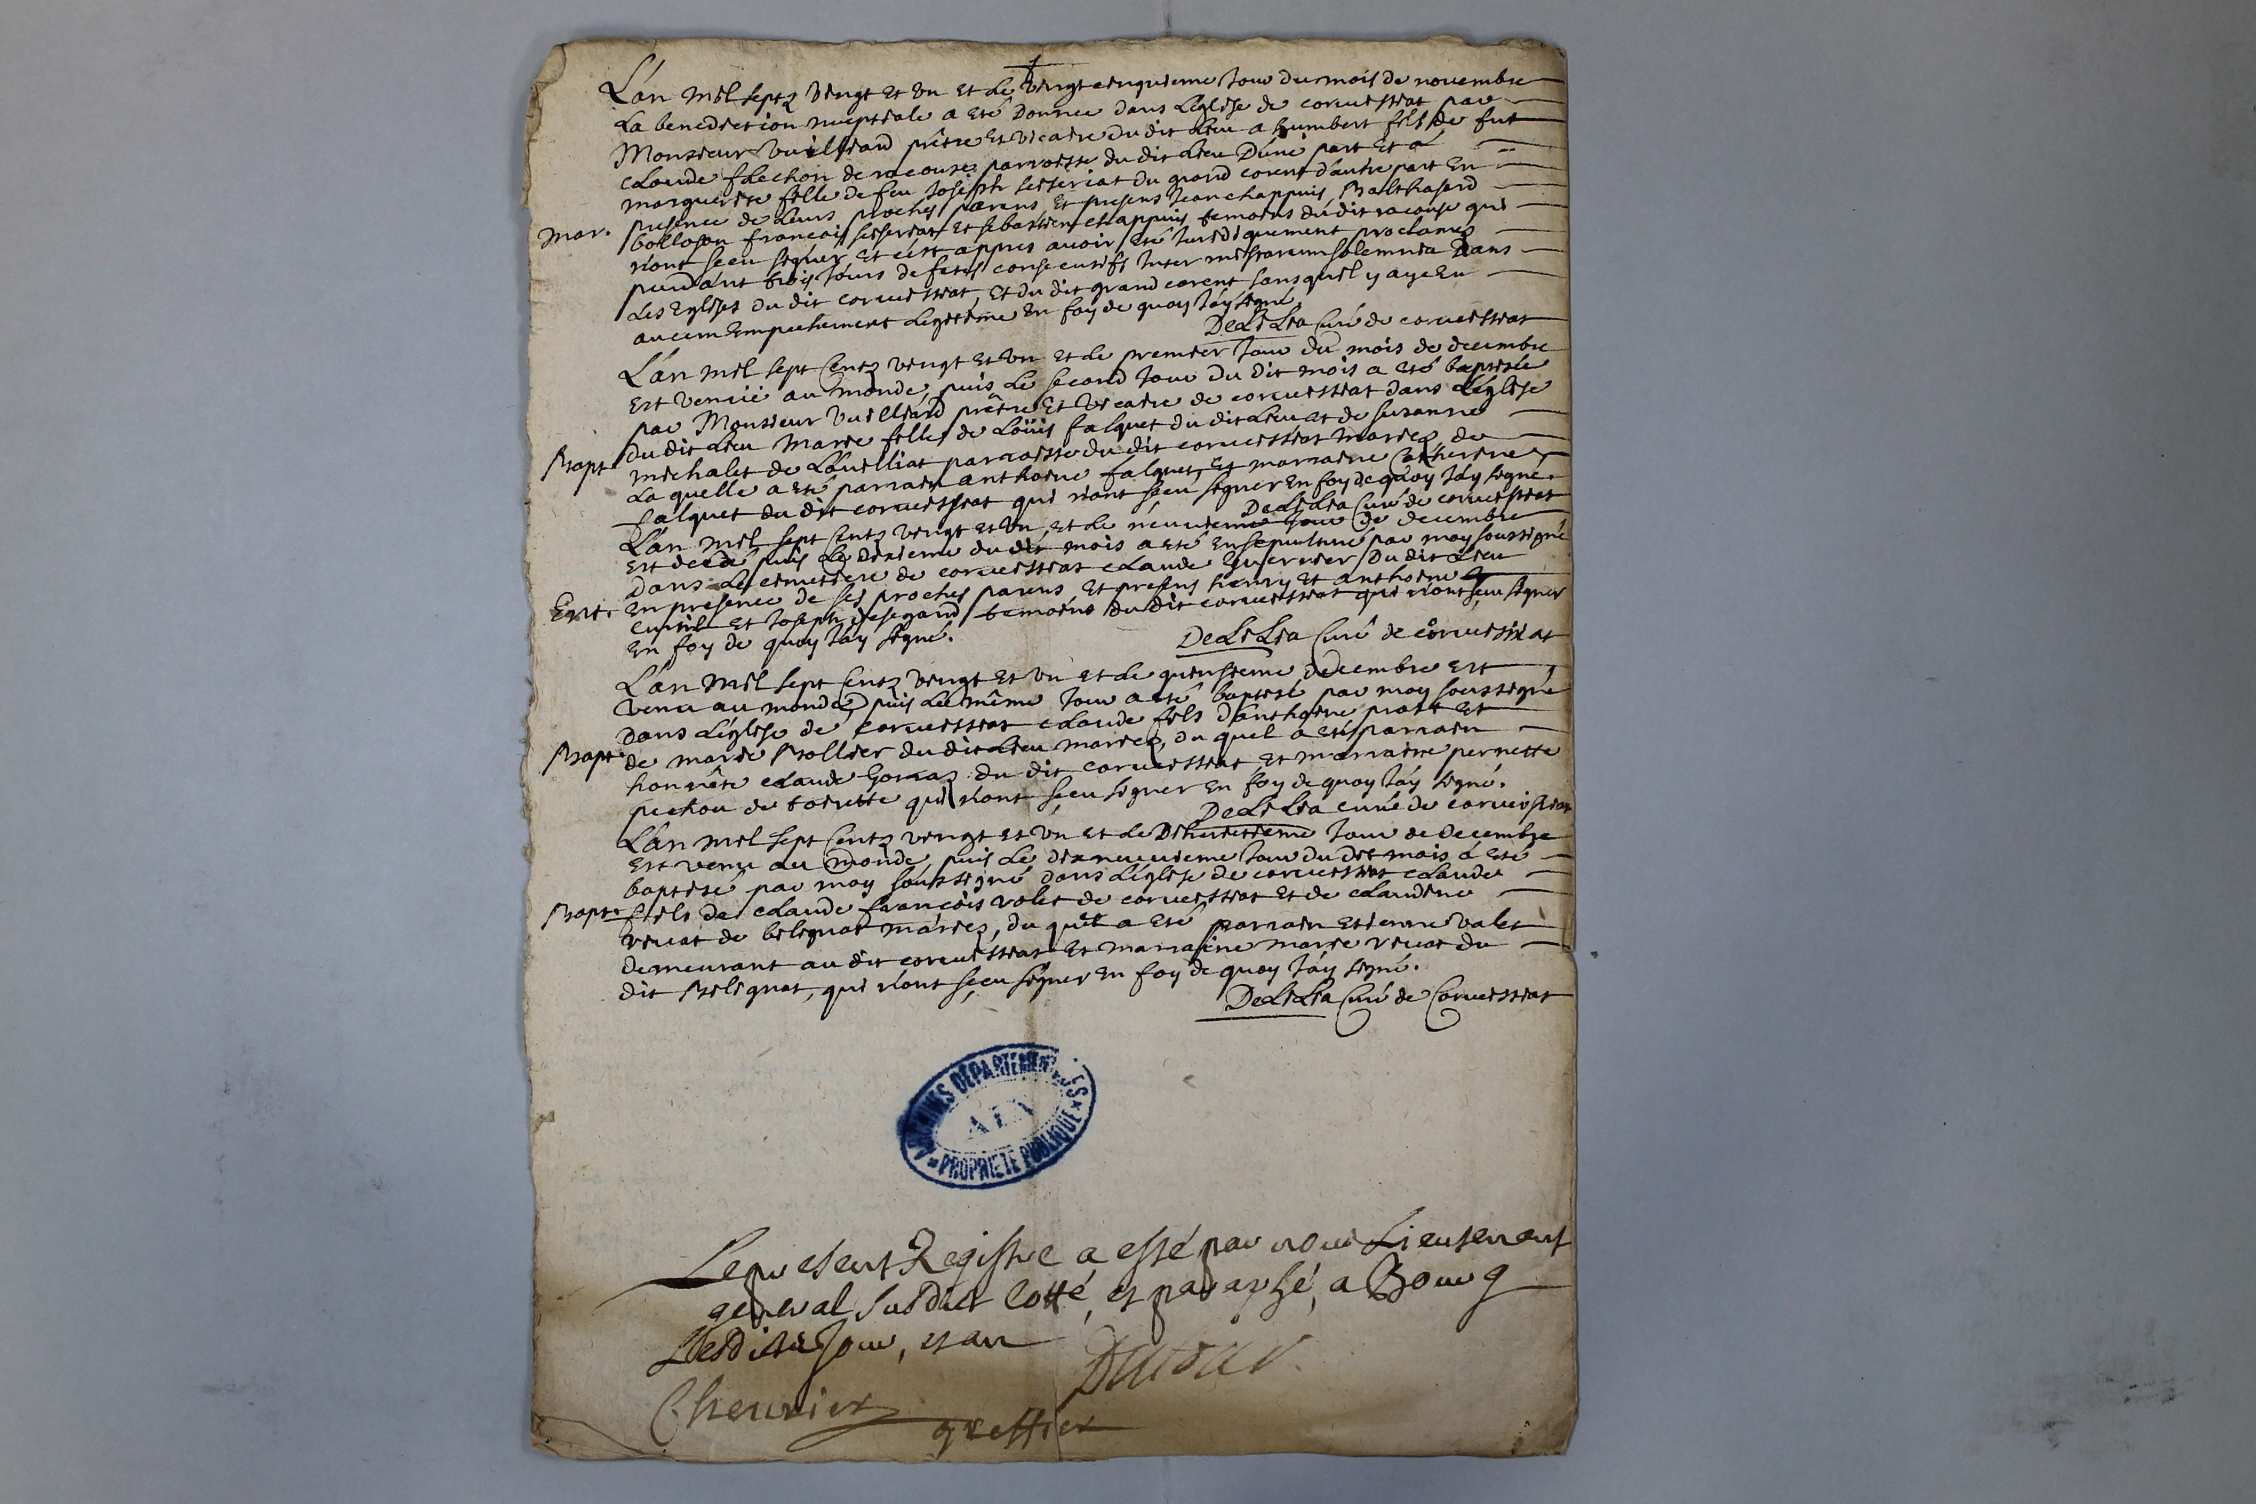 L'an mil sept vingt et un et le vingt cinquieme Jour du mois de novembre
La benediction nuptiale a eté Donnee dans L'eglise de corveissiat par
Monsieur Vuilliard prêtre et vicaire du dit Lieu a humbert fils de fut
claude flechon de racouze parroisse du dit Lieu D'une part et a
marguerite fille de feu Joseph seisseriat du grand corent d'autre part En
mar. presence de Leurs proches parens et presens Jean chappuis Balthasard
bolloson francois seisseriat et sebastien chappuis temoins du dit racouse qui
n'ont sceu signer et c'est apres avoir eté Juridiquement proclamés
pendant trois Jours de fetes consecutifs Inter missarum solemnia Dans
Les Eglises du dit corveissiat, et du dit grand corent sans quil y aye Eu
aucun Empechement Legitime En foy de quoy J'ay signé
DeLiLia Curé de corveissiat
L'an mil sept Centz vingt et un et le premier Jour du mois de decembre
est venüe au monde, puis le second Jour Du dit mois a eté baptisée
par Monsieur Vuilliard prêtre et vicaire de corveissiat dans L'église
du dit Lieu Marie fille de Loüis falquet du dit Lieu et de suzanne
Bapt. michalet de parroisse du dit corveissiat mariez, de
La quelle a eté parrain anthoine falquet, et marraine Catherine
falquet du dit corveissiat qui n'ont sceu signer En foy de quoy J'ay signé
DeLiLia Curé de corveissiat
L'an mil sept Centz vingt et un et le neuvieme Jour de decembre
est decedé puis le dixieme du dit mois a eté ensepulturé par moy soussigné
dans le cimetiere de corveissiat claude Du dit Lieu
Ent. En presence de ses proches parens et presens henry et anthoine
et Joseph temoins du dit corveissiat qui n'ont sceu signer
En foy de quoy J'ay signé.
DeLiLia Curé de corveissiat
L'an mil sept Centz vingt et un et le quinsieme decembre est
venu au monde, puis Le même Jour a eté baptisé par moy soussigné
dans L'église de Corveissiat claude fils d'anthoine prost et
Bapt. de marie Bollier du dit Lieu mariez, du quel a eté parrain
honnête claude Gomaz du dit corveissiat et marraine pernette
pechou de toirette qui n'ont sceu signer En foy de quoy J'ay signé.
DeLiLia curé de corveissiat
L'an mil sept Centz vingt et un et le Dixhuitieme Jour de decembre
est venu au monde, puis le dixneuvieme Jour du dit mois a eté
baptisé par moy soussigné dans L'église de corveissiat claude
Bapt. fils de claude françois volet de corveissiat et de claudine
revat de beligna mariez, du quel a eté parrain etienne valet
demeurant au dit corveissiat et marraine marie revat du
dit Belignat, qui n'ont sceu signer En foy de quoy J'ay signé.
DeLiLia Curé de Corveissiat
ARCHIVES DEPARTEMENTALES
AIN
PROPRIETE PUBLIQUE
Le present Registre a esté par nous Lieutenant
general susdict Cotté, et paraphé, a Bourg
Lesdits Jour, et an
Chevrier greffier